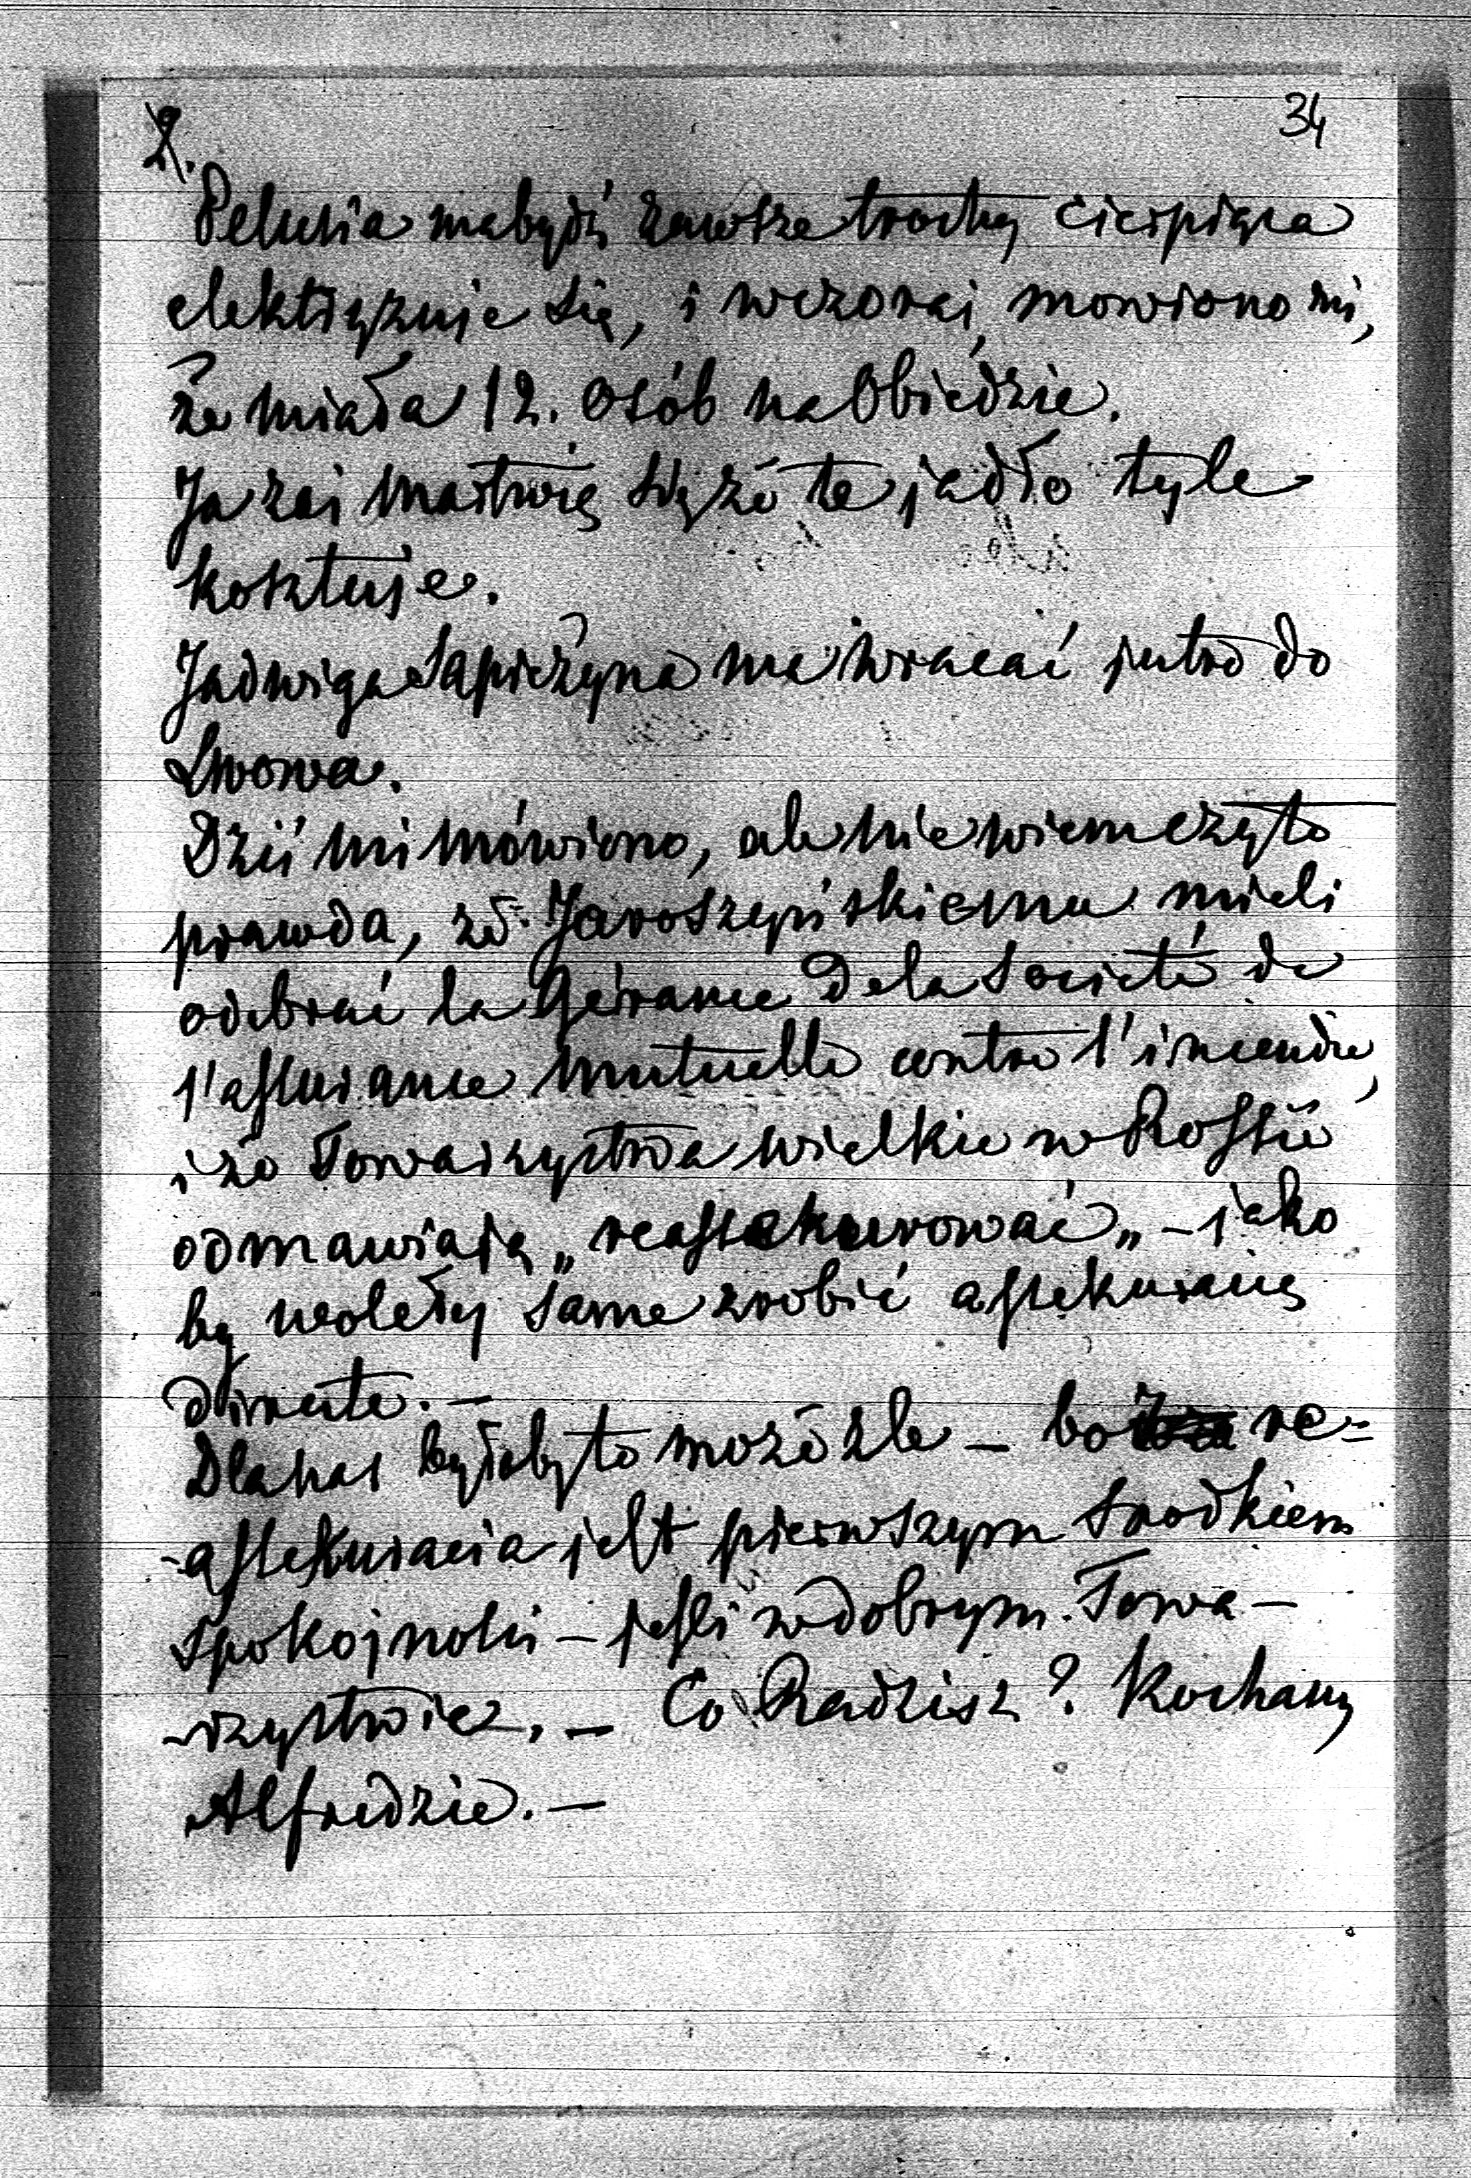 34
2.
Pelusia ma być zawsze trochę cierpiąca
elektryzuje się, i wczoraj mowiono mi,
że miała 12. osób na Obiedzie.
Ja zaś martwię się że te jadło tyle
kosztuje.
Jadwiga Sapieżyna ma wracać jutro do
Lwowa.
Dziś mi mówiono, ale nie wiem czy to
prawda, że Jaroszyńskiemu mieli
odebrać la Gérance de la Societé de
l'assurance Mutuelle contre l'incendie,
i że Towarzystwa wielkie w Rossii
odmawiają „reassekurować„ – jako
by wolały same zrobić assekuracię
directe. –
Dla nas byłoby to może źle – bo re=
-assekuracia jest pierwszym srodkiem
spokojności – jesli w dobrym Towa –
-rzystwie. – Co Radzisz? Kochany
Alfredzie. –